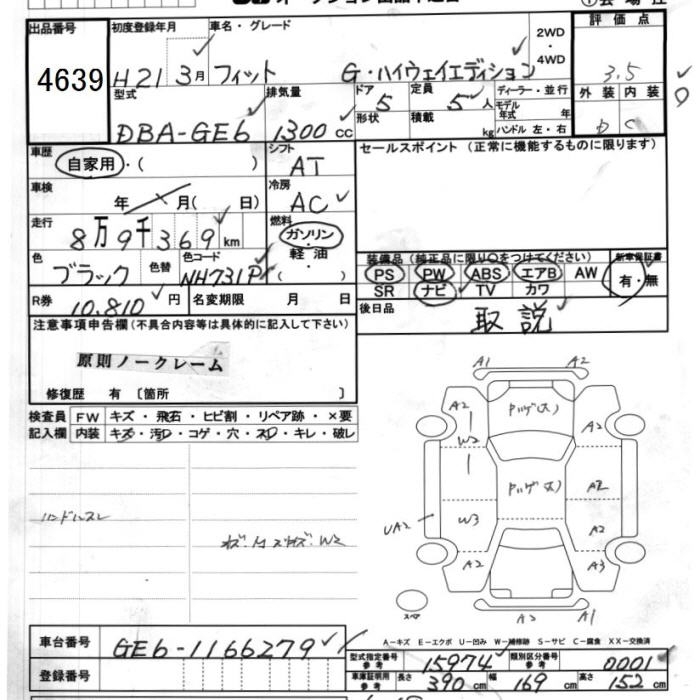 出品番号
4639
初度登録年月
H21 3月
車名・グレード
フィット G・ハイウェイエディション
2WD
・
4WD
評価点
3.5
型式
DBA-GE6
排気量
1300 cc
ドア
5
定員
5 人
ディーラー・並行
モデル年式 年
形状
積載 kg
ハンドル 左・右
外装 内装
D C
車歴
自家用・( )
シフト
AT
セールスポイント (正常に機能するものに限ります)
車検
年 月( 日)
冷房
AC
走行
8万9千369km
燃料
ガソリン・
軽油・
( )
色
ブラック
色替
色コード
NH731P
装備品(純正品に限り○をつけてください)
PS PW ABS エアB AW
SR ナビ TV カワ
新車保証書
有・無
R券
10,810円
名変期限 月 日
後日品
取説
注意事項申告欄(不具合内容等は具体的に記入して下さい)
原則ノークレーム
修復歴 有〔箇所 〕
検査員 FW キズ・飛石・ヒビ割・リペア跡・×要
記入欄 内装 キズ・汚レ・コゲ・穴・スレ・キレ・破レ
ハンドルスレ
A1 A2
A2
W2
W3
UA2
A2
A2
A2
A3
A1
スペア
A-キズ E-エクボ U-凹み W-補修跡 S-サビ C-腐食 XX-交換済
車台番号
GE6-1166279
型式指定番号
参考
15974
類別区分番号
参考
0001
登録番号
車庫証明用
参考
長さ 390 cm 幅 169 cm 高さ 152 cm